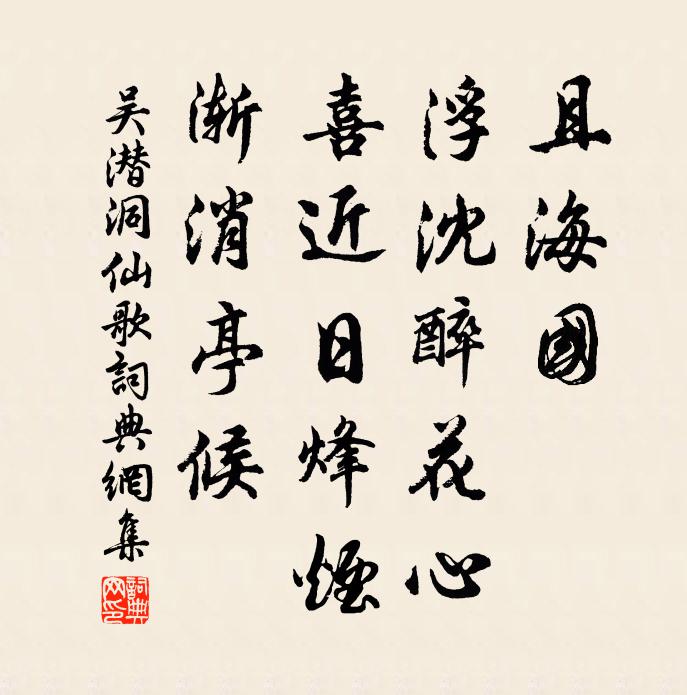 且海國
浮沈醉花心
喜近日烽煙
漸消亭候
吴潜洞仙歌詞典網集
詞典網印